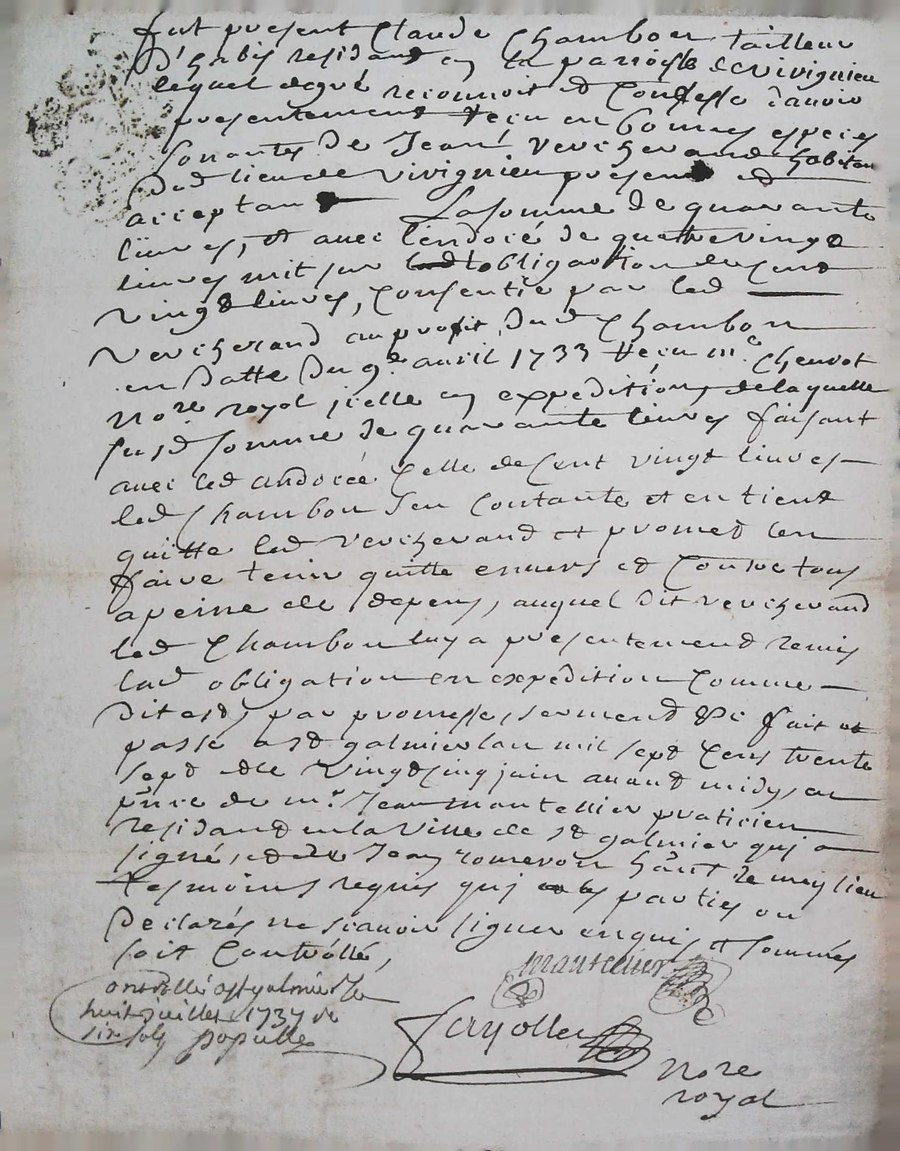 fut present Claude Chambon tailleur
d'habis residant en la parroisse de vivignieu
lequel degré reconnoit et Confesse davoir
presentement Receu en bonnes especes
sonantes de Jean Vercherand habitan
dud lieu de Vivignieu present et
acceptan La somme de quarante
livres, et avec lendocé de quattre vingt
livres mit sur lobligation de Cent
vingt livres, Consentie par led
Vercherand au profit dud Chambon
en datte du 9e avril 1733 Receu me Chenvot
Nore royal jcelle en expedition, de laquelle
susd somme de quarante livres faisant
avec led andocée Celle de Cent vingt livres
led Chambon sen Contante et en tient
quitte led Vercherand et promet len
faire tenir quitte envers et Contre tous
a peine de depens, auquel dit vercherand
led Chambon luy a presentement remis
lad obligation en expedition Comme
dit est, par promesse, serment &c fait et
passé a st galmier lan mil sept Cens trente
sept et le Vingt Cinq juin avant midy, en
pnce de mr Jean mantellier praticien
residant en la Ville de st galmier quj a
signé, et de Jean romeron hant de meylieu
tesmoins requis quj les parties on
declarés ne scavoir signer enquis et sommés
soit Controllé,
mantellier
ontrollé a st galmier le
huit juillet 1737 R
six sols populle
fayolle
Nore
royal